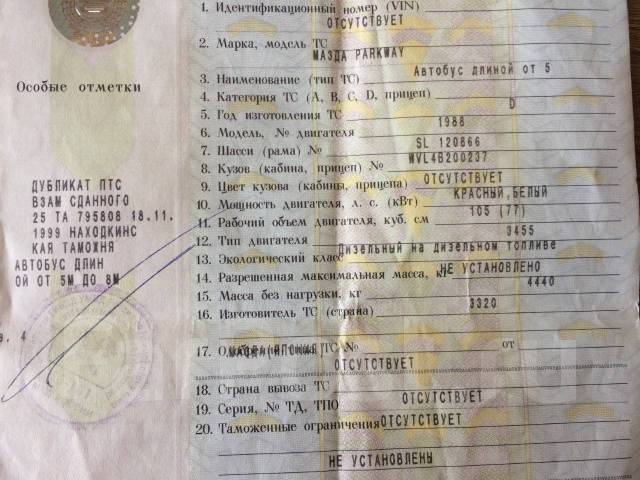 Особые отметки
ДУБЛИКАТ ПТС
ВЗАМ СДАННОГО
25 ТА 795808 18.11.
1999 НАХОДКИНС
КАЯ ТАМОЖНЯ
АВТОБУС ДЛИН
ОЙ ОТ 5М ДО 8М
1. Идентификационный номер (VIN)
ОТСУТСТВУЕТ
2. Марка, модель ТС
МАЗДА PARKWAY
3. Наименование (тип ТС)
Автобус длиной от 5
4. Категория ТС (A, B, C, D, прицеп)
D
5. Год изготовления ТС
1988
6. Модель, № двигателя
SL 120866
7. Шасси (рама) №
WVL4B200237
8. Кузов (кабина, прицеп) №
ОТСУТСТВУЕТ
9. Цвет кузова (кабины, прицепа)
КРАСНЫЙ,БЕЛЫЙ
10. Мощность двигателя, л. с. (кВт)
105 (77)
11. Рабочий объем двигателя, куб. см
3455
12. Тип двигателя
Дизельный на дизельном топливе
13. Экологический класс
НЕ УСТАНОВЛЕНО
14. Разрешенная максимальная масса, кг
4440
15. Масса без нагрузки, кг
3320
16. Изготовитель ТС (страна)
17. ТС № от
ОТСУТСТВУЕТ
18. Страна вывоза ТС
ОТСУТСТВУЕТ
19. Серия, № ТД, ТПО
ОТСУТСТВУЕТ
20. Таможенные ограничения
НЕ УСТАНОВЛЕНЫ